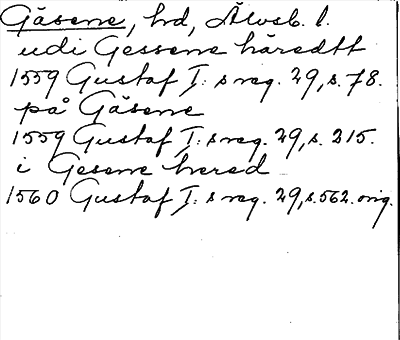 Gäsene, hd, Älvsb. l.
udi Gessene häredtt
1559 Gustaf I:s reg. 29, s. 78.
på Gäsene
1559 Gustaf I:s reg. 29, s. 215.
i Gesene hered
1560 Gustaf I:s reg. 29, s. 562. orig.